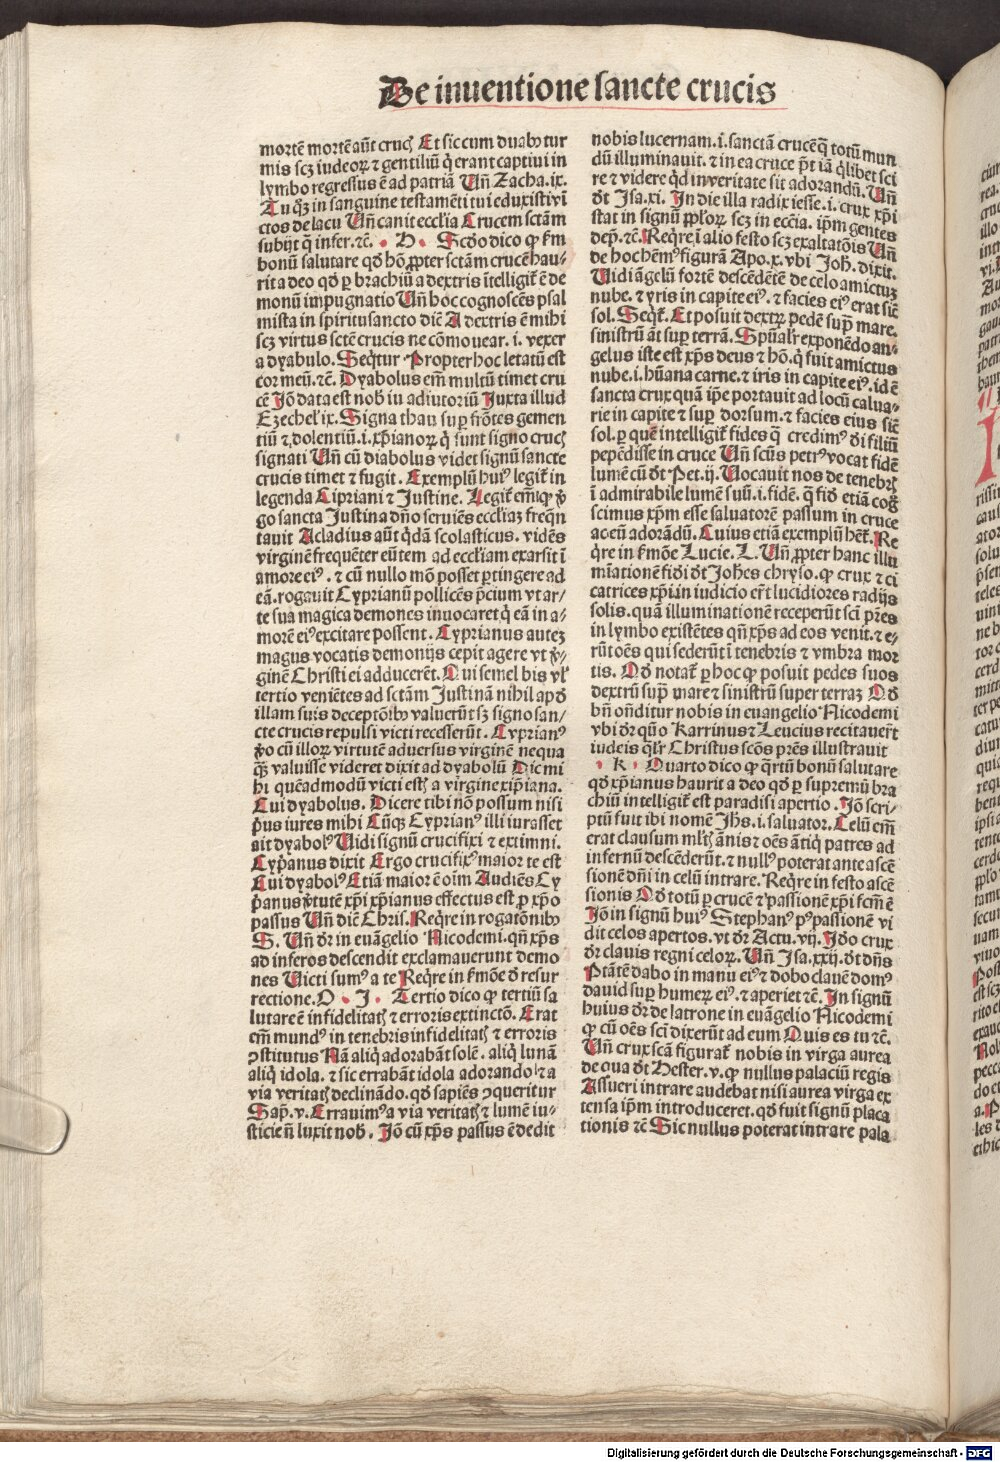 De inuentione sancte crucis
mortē mortē aūt crucꝭ Et sic cum duabꝰ tur
mis scꝫ iudeoꝝ ⁊ gentiliū q̇ erant captiui in
lymbo regressus ē ad patriā Uñ Zacha. ix.
Tu qꝫ in sanguine testamēti tui eduxisti vi
ctos de lacu Uñ canit eccl'ia Crucem sctām
subijt q̄ infer. ⁊c̄. H. Scd̓o dico ꝙ ẜm
bonū salutare qd̓ hō ꝓpter sctām crucē hau-
rit a deo qd̓ ꝑ brachiū a dextris ītelligit̄ ē de
monū impugnatio Uñ hoc cognoscēs psal
mista in spiritusancto diē A dextris ē mihi
scꝫ virtus sctē crucis ne cōmouear. i. vexer
a dyabulo. Seq̄tur Propter hoc letatū est
cor meū. ⁊c̄. Dyabolus em̄ multū timet cru
cē Iō data est nob̓ iu adiutoriū Iuxta illud
Ezechel' ix. Signa thau suꝑ frōtes gemen
tiū ⁊ dolentiū. i. xp̄ianoꝝ q̇ sunt signo crucꝭ
signati Uñ cū diabolus videt signū sancte
crucis timet ⁊ fugit. Exemplū huiꝰ legit̄ in
legenda Cipriani ⁊ Iustine. Legit̄ em̄ ꝙ v̓
go sancta Iustina dn̄o seruiēs eccl'iaꝫ freq̄n
tauit Acladius aūt qdā scolasticus. vidēs
virginē frequēter eūtem ad eccl'iam exarsit ī
amore eiꝰ. ⁊ cū nullo mō posset ꝑtingere ad
eā. rogauit Cyprianū pollicēs p̄cium vt ar/
te sua magica demones inuocaret q̇ eā in a-
morē eiꝰ excitare possent. Cyprianus auteꝫ
magus vocatis demonijs cepit agere vt v̓-
ginē Christi ei adducerēt. Qui semel bis vl'
tertio veniētes ad sctām Iustinā nihil apd̓
illam suis deceptōibꝰ valuerūt sꝫ signo san/
cte crucis repulsi victi recesserūt. Cyprianꝰ
v̓o cū illoꝝ virtutē aduersus virginē nequa
q̄ꝫ valuisse videret dixit ad dyabolū Dic mi
hi quēadmodū victi estꝭ a virgine xp̄iana.
Cui dyabolus. Dicere tibi nō possum nisi
p̓us iures mihi Cūqꝫ Cyprianꝰ illi iurasset
ait dyabolꝰ Uidi signū crucifixi ⁊ extimui.
Cyp̓anus dixit Ergo crucifixꝰ maior te est
Cui dyabolꝰ Etiā maior ē oīm Audiēs Cy
p̓anus v̓tutē xp̄i xp̄ianus effectus est ꝓ xp̄o
passus Uñ diē Chris. Req̓re in rogatōnibꝰ
S. Uñ dr̄ in euāgelio Nicodemi. qn̄ xp̄s
ad inferos descendit exclamauerunt demo
nes Uicti sumꝰ a te Req̓re in ẜmōe d̓ resur
rectione. O. I. Tertio dico ꝙ tertiū sa
lutare ē infidelitatꝭ ⁊ erroris extinctō. Erat
em̄ mundꝰ in tenebris infidelitatꝭ ⁊ erroris
ꝯstitutus Nā aliq̇ adorabāt solē. aliq̇ lunā
aliq̇ idola. ⁊ sic errabāt idola adorando ⁊ a
via veritatꝭ declinādo. qd̓ sapiēs ꝯqueritur
Sap̄. v. Errauimꝰ a via veritatꝭ ⁊ lumē iu-
sticie n̄ luxit nob̓. Iō cū xp̄s passus ē dedit
nobis lucernam. i. sanctā crucē q̄ totū mun
dū illuminauit. ⁊ in ea cruce p̄t iā q̇libet sci
re ⁊ videre qd̓ in veritate sit adorandū. Uñ
d̓t Isa. xi. In die illa radix iesse. i. crux xp̄i
stat in signū ppl'oꝝ scꝫ in ecc̄ia. ip̄m gentes
dep̄. ⁊c̄. Req̓re ī alio festo scꝫ exaltatōis Uñ
de hoc hēmꝰ figurā Apo. x. vbi Ioh̄. dixit.
Uidi āgelū fortē descēdētē de celo amictuꝫ
nube. ⁊ yris in capite eiꝰ. ⁊ facies eiꝰ erat sic̄
sol. Seqt̄. Et posuit dextꝝ pedē suꝑ mare.
sinistrū aūt suꝑ terrā. Spūal'r exponēdo an-
gelus iste est xp̄s deus ⁊ hō. q̇ fuit amictus
nube. i. hūana carne. ⁊ iris in capite eiꝰ. id ē
sancta crux quā ip̄e portauit ad locū calua-
rie in capite ⁊ suꝑ dorsum. ⁊ facies eius sic̄
sol. ꝑ quē intelligit̄ fides q̄ credimꝰ d̓i filiū
pepēdisse in cruce Uñ scūs petrꝰ vocat fidē
lumē cū d̓t Pet. ij. Uocauit nos de tenebrꝭ
ī admirabile lumē suū. i. fidē. q̄ fid̓ etiā cog̓
scimus xp̄m esse saluatorē passum in cruce
ac eū adorādū. Cuius etiā exemplū hēt̄. Re
q̓re in ẜmōe Lucie. L. Uñ ꝓpter hanc illu
mīationē fid̓i d̓t Joh̄es chryso. ꝙ crux ⁊ ci
catrices xp̄i in iudicio er̄t lucidiores radijs
solis. quā illuminationē receperūt scī p̄res
in lymbo existētes qn̄ xp̄s ad eos venit. ⁊ e-
rūt oēs qui sederūt ī tenebris ⁊ vmbra mor
tis. Qd̓ notat̄ ꝑ hoc ꝙ posuit pedes suos
dextrū suꝑ mare ⁊ sinistrū super terraꝫ Qd̓
bn̄ ondit̄ur nobis in euangelio Nicodemi
vbi dr̄ quō Karrinus ⁊ Leucius recitauer̄t
iudeis ql'r Christus scōs p̄res illustrauit
K. Quarto dico ꝙ q̄rtū bonū salutare
qd̓ xp̄ianus haurit a deo qd̓ ꝑ supremū bra
chiū intelligit̄ est paradisi apertio. Iō scri-
ptū fuit ibi nomē Jhs. i. saluator. Celū em̄
erat clausum mltꝭ ānis ⁊ oēs ātiq̇ patres ad
infernū descēderūt. ⁊ nullꝰ poterat ante ascē
sionē dn̄i in celū intrare. Req̓re in festo ascē
sionis Qd̓ totū ꝑ crucē ⁊ passionē xp̄i fcm̄ ē
Iō in signū huiꝰ Stephanꝰ pꝰ passionē vi
dit celos apertos. vt dr̄ Actu. vij. Id̓o crux
dr̄ clauis regni celoꝝ. Uñ Isa. xxij. d̓t dn̄s
Ptātē dabo in manu eiꝰ ⁊ dobo clauē domꝰ
dauid suꝑ humeꝝ eiꝰ. ⁊ aperiet ⁊c̄. In signū
huius dr̄ de latrone in euāgelio Nicodemi
ꝙ cū oēs scī dixerūt ad eum Quis es tu ⁊c̄.
Uñ crux scā figurat̄ nobis in virga aurea
de qua d̓t Hester. v. ꝙ nullus palaciū regis
Assueri intrare audebat nisi aurea virga ex
tensa ip̄m introduceret. qd̓ fuit signū placa
tionis ⁊c̄ Sic nullus poterat intrare pala
Digitalisierung gefördert durch die Deutsche Forschungsgemeinschaft - DFG